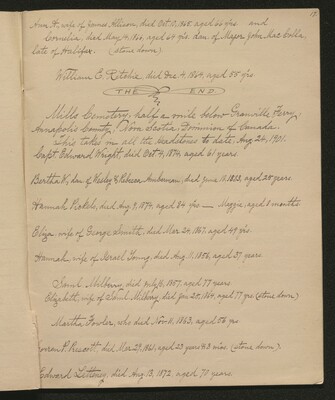 17
Ann A, wife of James Allison, died Oct. 10, 1865, aged 66 yrs. and
Cornelia, died May, 4, 1866, aged 64 yrs. dau. of Major John Mac Colla
late of Halifax. (stone down)
William E. Ritchie, died Dec. 4, 1864, aged 55 yrs.
THE END
Mills Cemetery, half a mile below Granville Ferry
Annapolis County, Nova Scotia. Dominion of Canada.
This takes in all the headstones to date, Aug. 26, 1901.
Capt. Edward Wright, died Oct. 4, 1874, aged 61 years
Bertha H, dau. of Wesley & Rebecca Amberman, died June 10, 1883, aged 25 years
Hannah Pickels, died Aug. 9, 1874, aged 84 yrs — Maggie, aged 8 months
Eliza, wife of George Smith, died Mar. 29, 1867, aged 49 yrs.
Hannah, wife of Israel Young, died Aug. 11, 1856, aged 37 years
Saml Milberry, died July 16, 1857, aged 77 years
Elizabeth, wife of Saml Milbery, died Jan. 25, 1864, aged 77 yrs (stone down)
Martha Fowler, who died Nov. 11, 1863, aged 56 yrs
P. Prescott, died Mar. 29, 1861, aged 23 years & 3 mos. (stone down)
Edward died Aug. 13, 1872, aged 70 years.